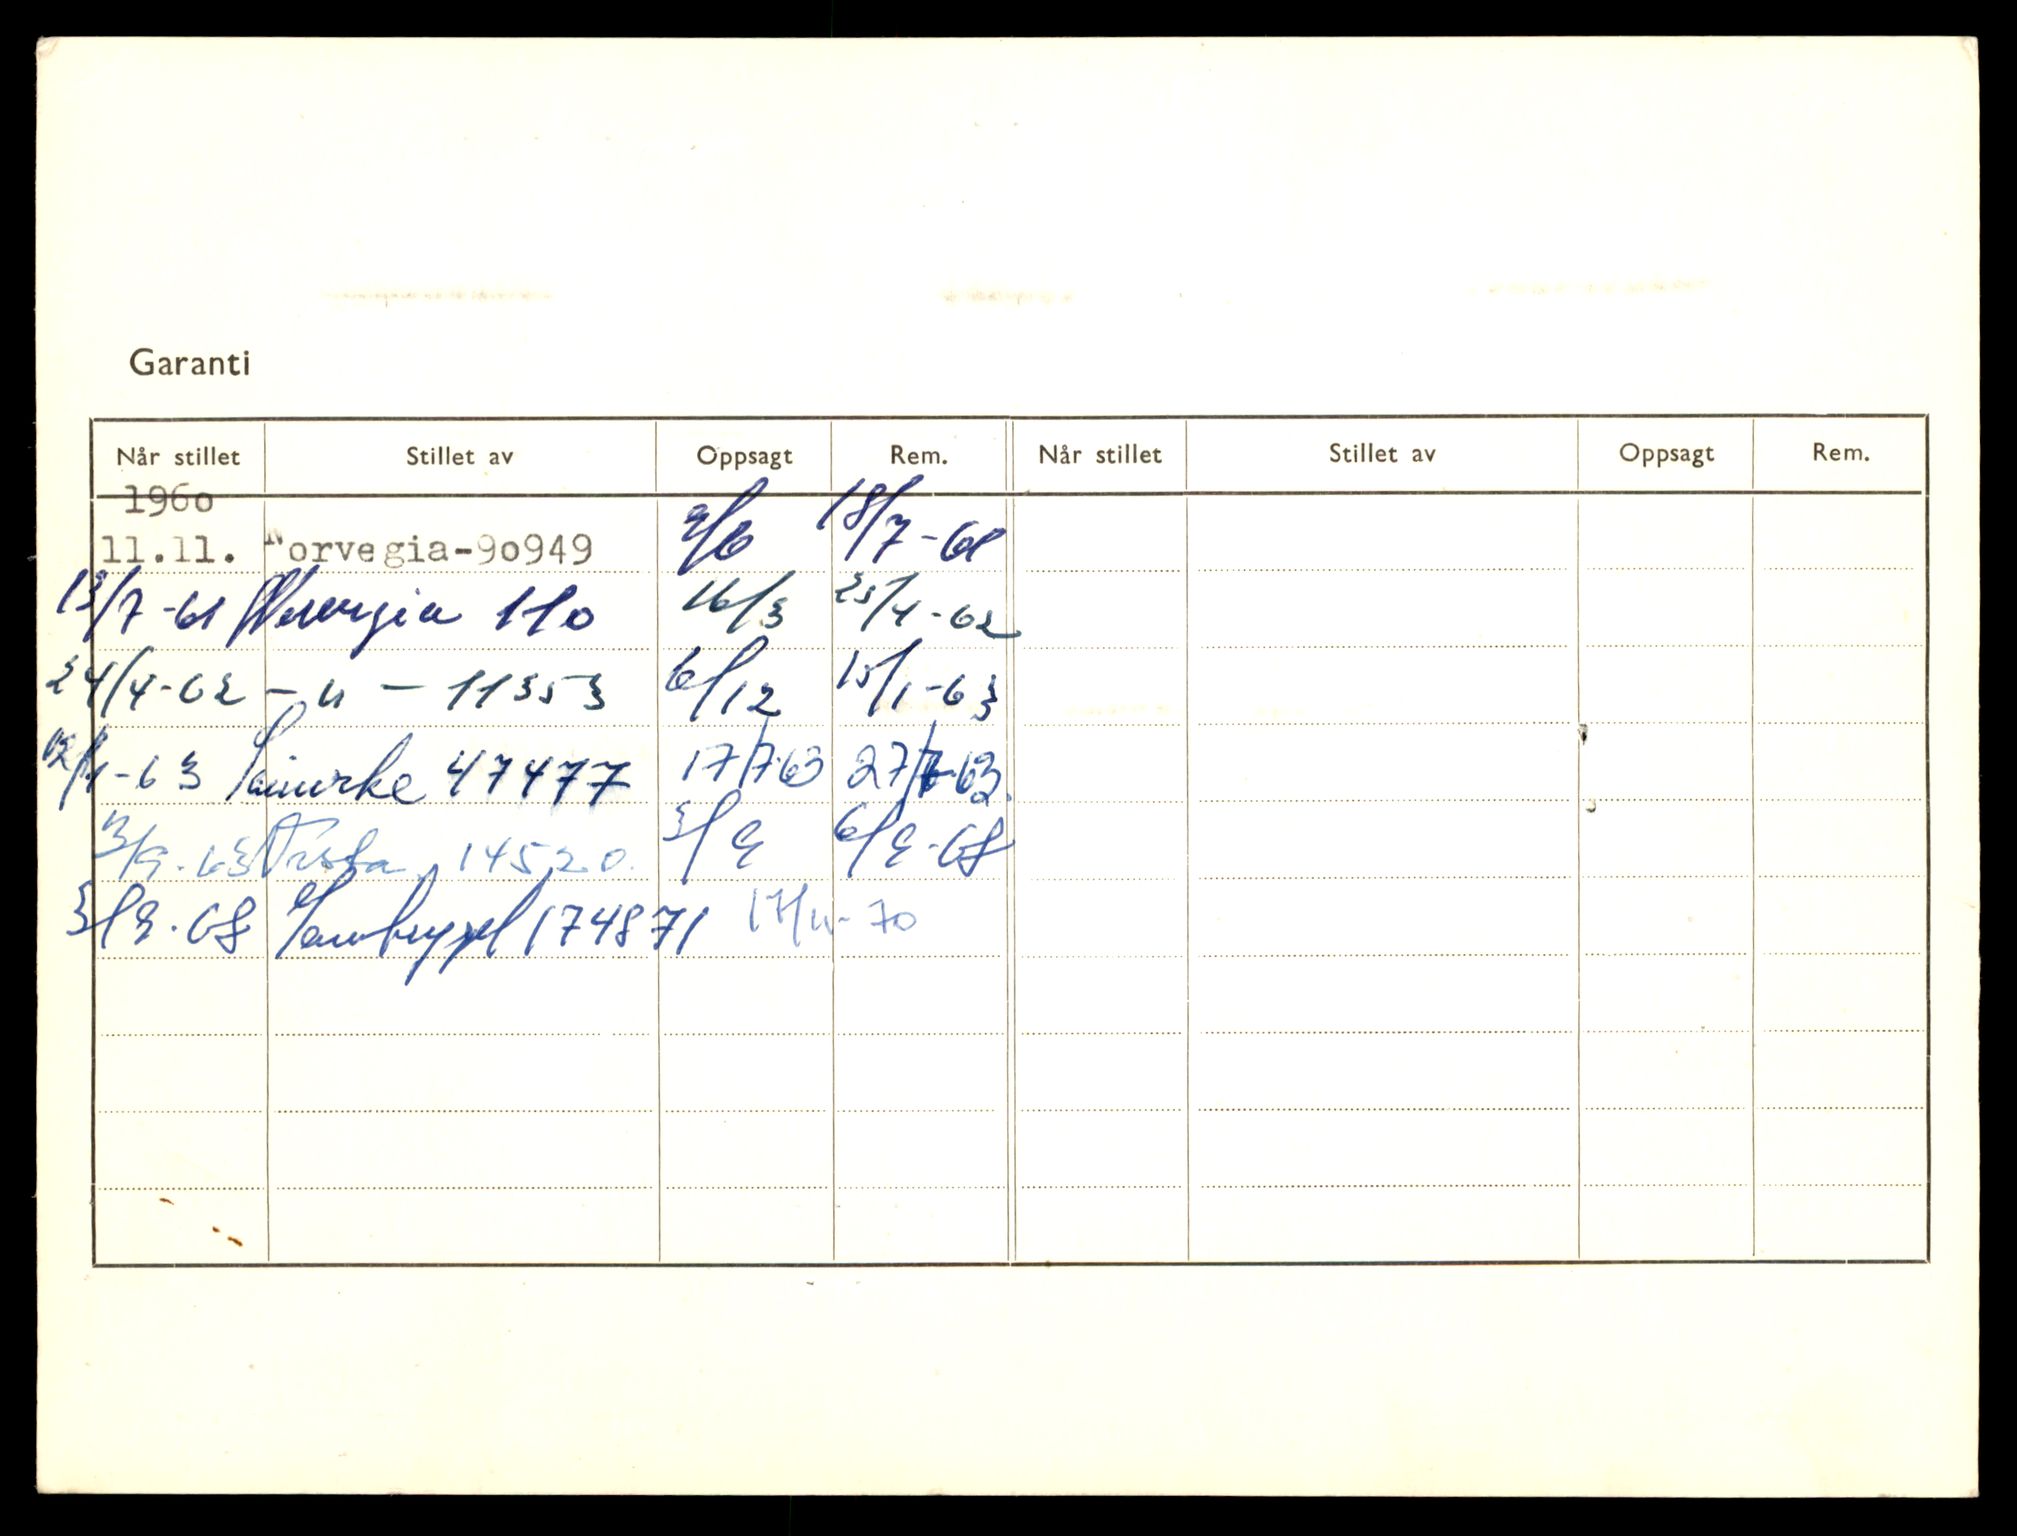 Garanti
Når stillet Stillet av Oppsagt Rem. Når stillet Stillet av Oppsagt Rem.
1960
11.11. Norvegia-90949 18/7-61
13/7-61 Norvegia 110 16/3 25/4-62
24/4-62 -"- 11353 6/12 15/1-63
12/1-63 Samvirke 47477 17/7-63 27/7-63.
14520. 6/9-68
3/9-68 174871 17/11-70